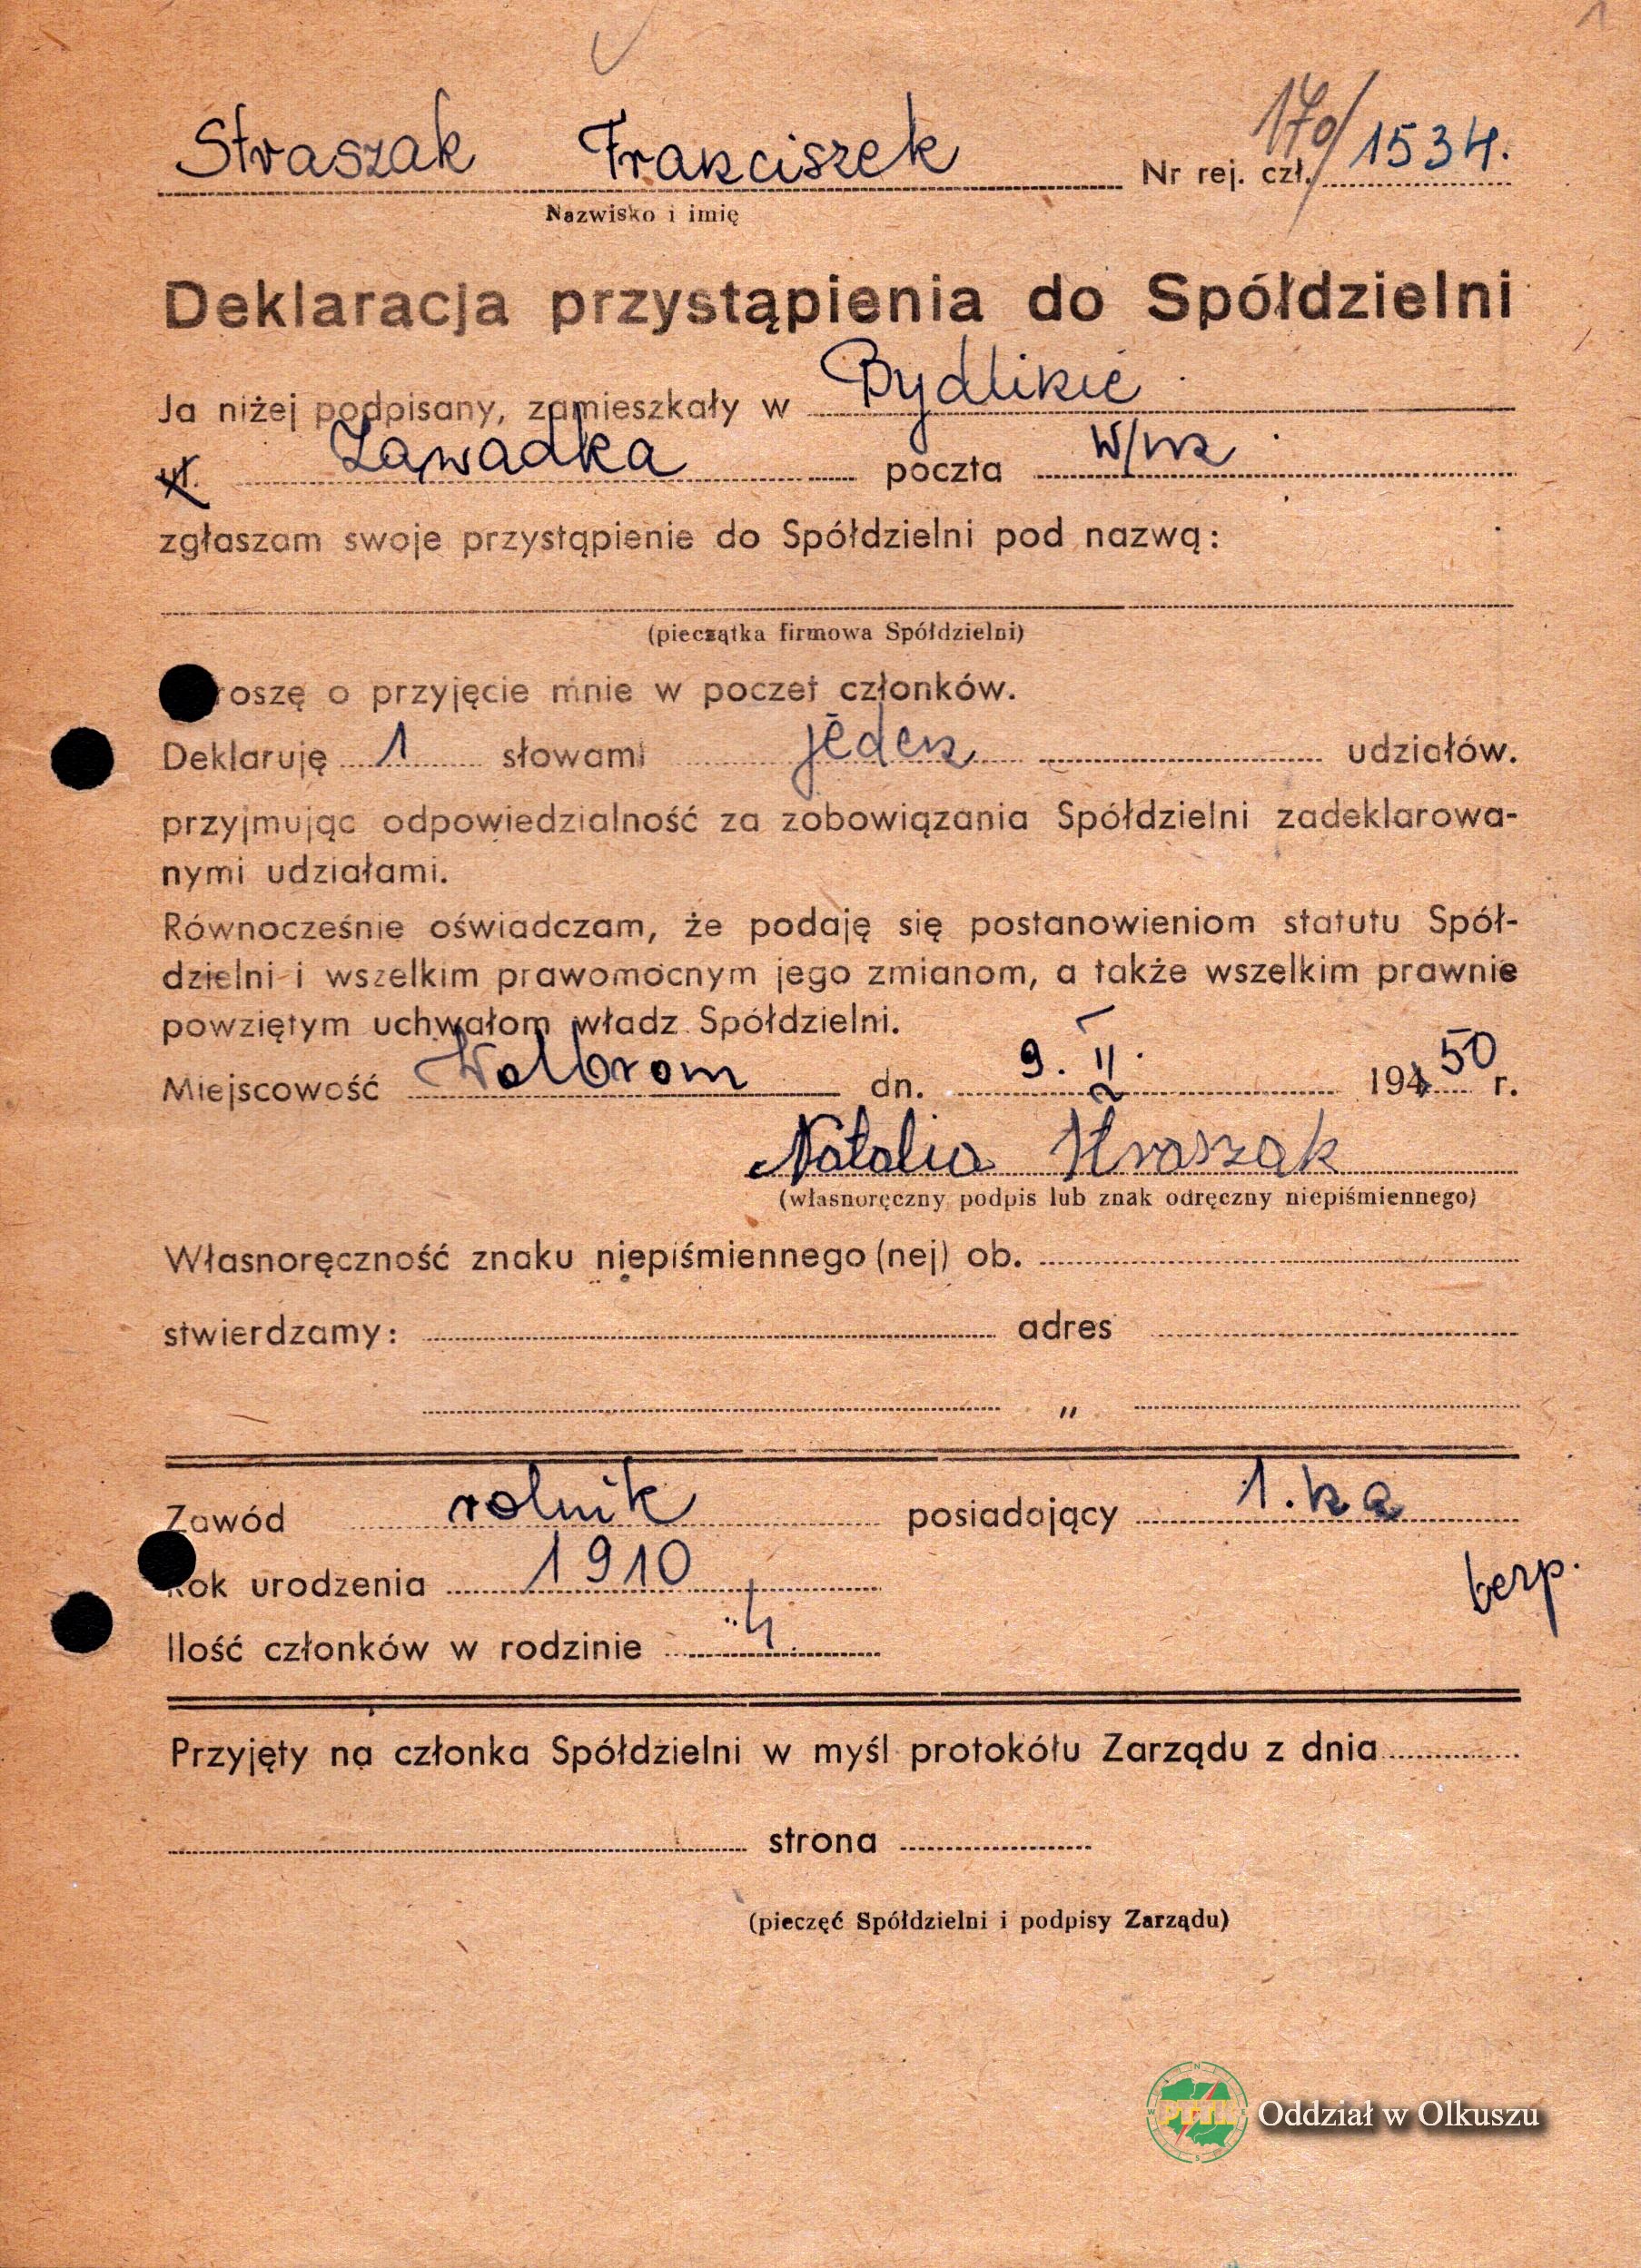 1
Straszak Franciszek Nr rej. czł. 170/1534.
Nazwisko i imię
Deklaracja przystąpienia do Spółdzielni
Ja niżej podpisany, zamieszkały w Bydlikie
ul. Zawadka poczta w/m
zgłaszam swoje przystąpienie do Spółdzielni pod nazwą:
(pieczątka firmowa Spółdzielni)
roszę o przyjęcie mnie w poczet członków.
Deklaruję 1 słowami jeden udziałów.
przyjmując odpowiedzialność za zobowiązania Spółdzielni zadeklarowa-
nymi udziałami.
Równocześnie oświadczam, że podaję się postanowieniom statutu Spół-
dzielni i wszelkim prawomocnym jego zmianom, a także wszelkim prawnie
powziętym uchwałom władz Spółdzielni.
Miejscowość Wolbrom dn. 9. II. 194 50 r.
Natalia Straszak
(własnoręczny podpis lub znak odręczny niepiśmiennego)
Własnoręczność znaku niepiśmiennego (nej) ob.
stwierdzamy: adres
"
Zawód rolnik posiadający 1. ha
Rok urodzenia 1910 bezp.
Ilość członków w rodzinie 4
Przyjęty na członka Spółdzielni w myśl protokółu Zarządu z dnia
strona
(pieczęć Spółdzielni i podpisy Zarządu)
PTTK Oddział w Olkuszu